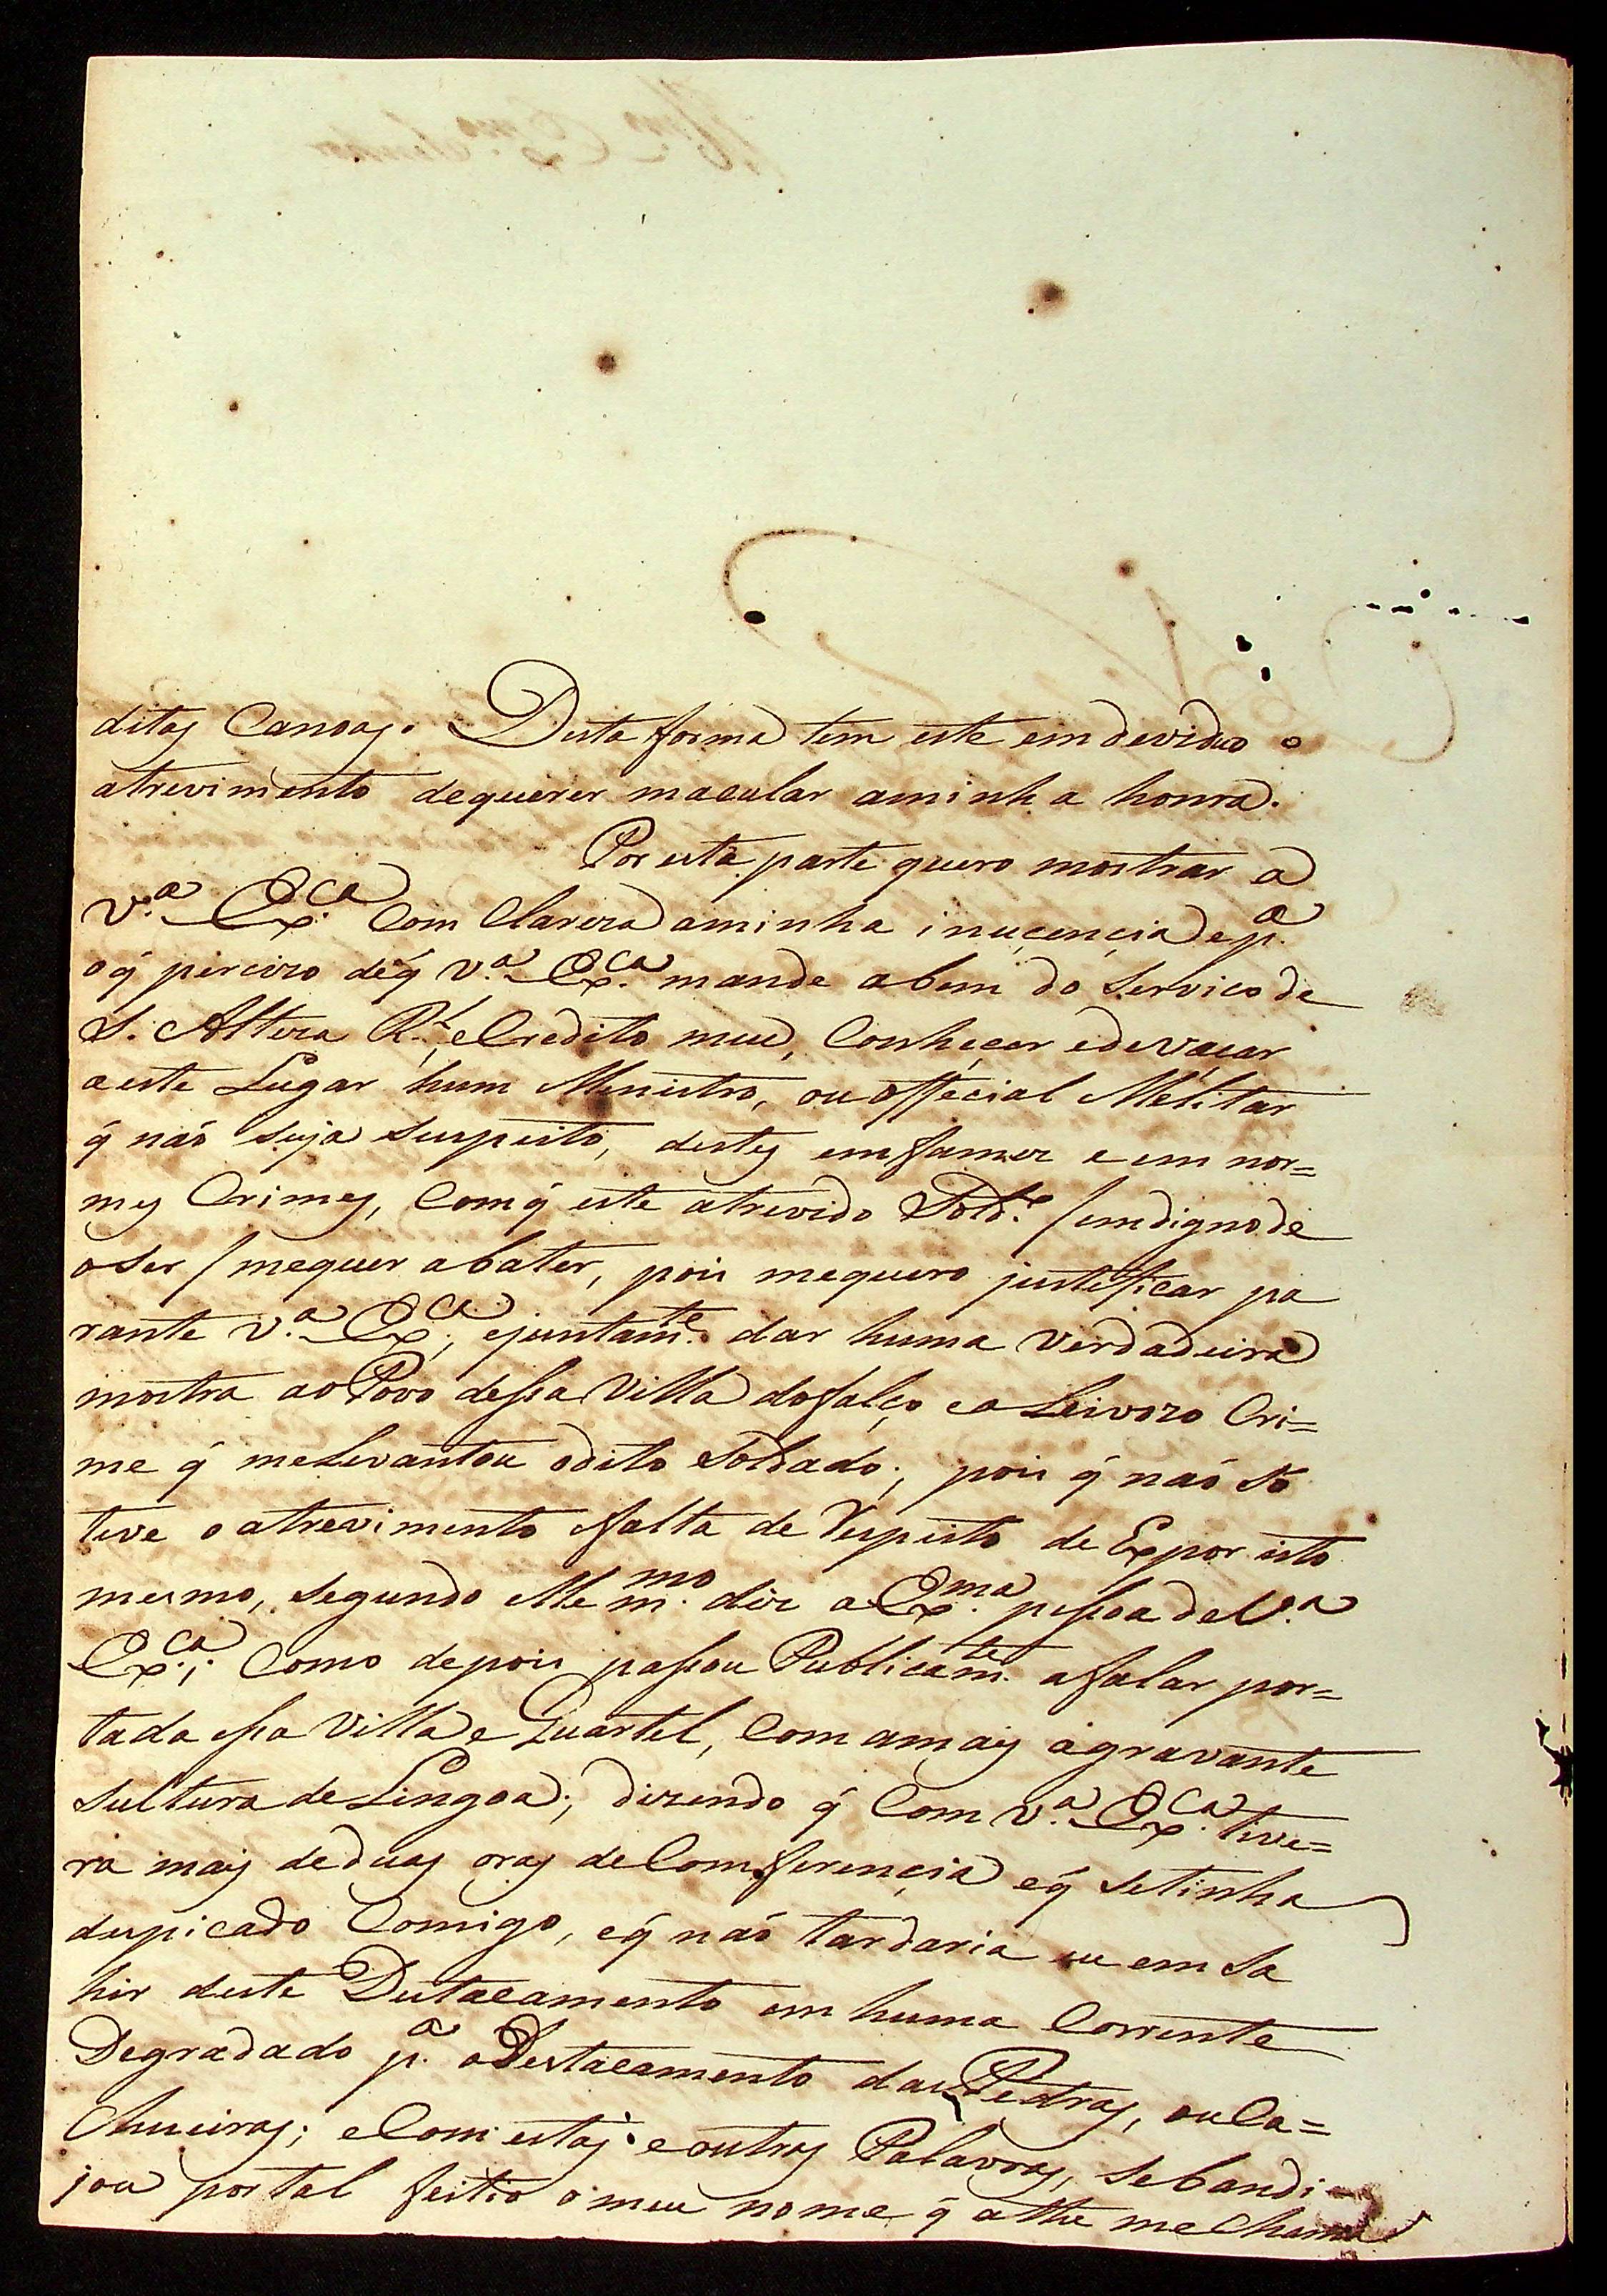 ditas Canoas. Desta forma tem este emdeviduo o
atrevimento dequerer macular aminha honra.
Por esta parte quero mostrar a
V.ª Ex.ca Com Clareza aminha inuçençia e p.ª
oq̃ percizo deq̃ V.ª Ex.ca mande abem do Serviço de
S. Alteza R.l, e Credito meu, Conheçer edevaçar
aeste Lugar hum Menistro, ou offecial Melitar
q̃ naõ seja suspeito, destes emfames e em nor=
mes Crimes, Com q̃ este atrevido Sold.º /emdigno de
o ser/ mequer abater, pois mequero justeficar pa
rante V.ª Ex.ca; ejuntam.te dar huma Verdadeira
mostra ao Povo dessa Villa dofalço e aLeivozo Cri=
me q̃ meLevantou odito Soldado; pois q̃ naõ só
teve o atrevimento efalta de Respeito de Expor isto
mesmo, segundo elle m.mo diz a Ex.ma pessoa de V.ª
Ex.ca; Como depois passou Publicam.te afalar por=
tada essa Villa e Quartel, Com amais agravante
sultura de Lingoa; dizendo q̃ Com V.ª Ex.ca tive=
ra mais deduas oras de Comferençia eq̃ setinha
despicado Comigo, eq̃ naõ tardaria eu em Sa
hir deste Destacamento em huma Corrente
Degradado p.ª o Destacamento das Pedras, ou Ca=
chueiras; e Com estas e outras Palavras, sebandi=
jou portal feitio o meu nome q̃ athe me Chama